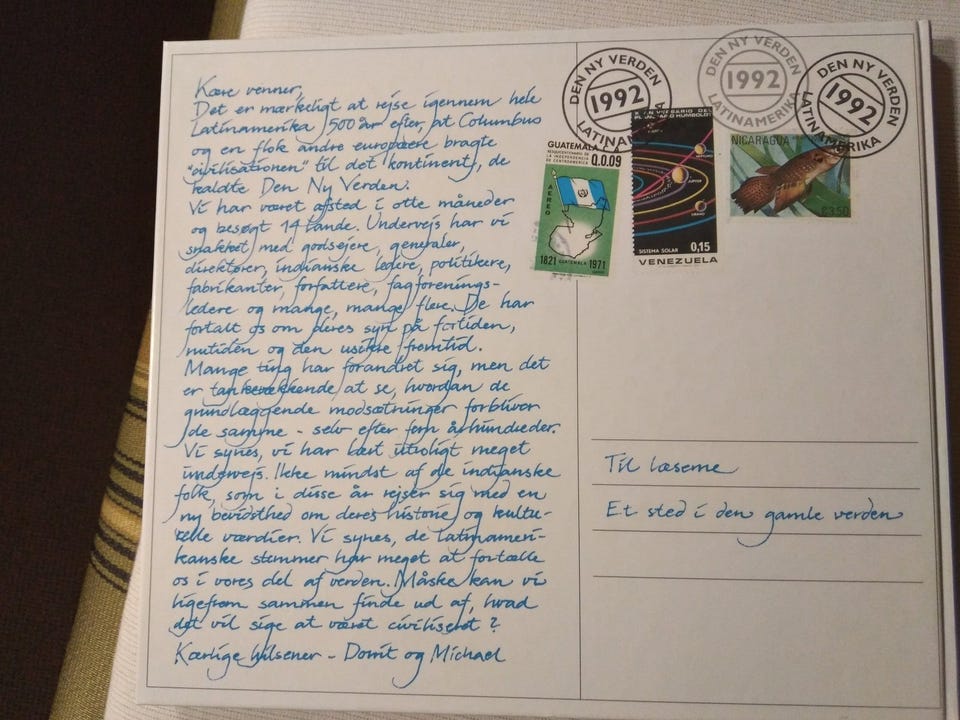 Kære venner,
Det er mærkeligt at rejse igennem hele
Latinamerika 500 år efter, at Columbus
og en flok andre europæere bragte
"civilisationen" til det kontinent, de
kaldte Den Ny Verden.
Vi har været afsted i otte måneder
og besøgt 14 lande. Undervejs har vi
snakket med godsejere, generaler,
direktører, indianske ledere, politikere,
fabrikanter, forfattere, fagforenings-
ledere og mange, mange flere. De har
fortalt os om deres syn på fortiden,
nutiden og den usikre fremtid.
Mange ting har forandret sig, men det
er tankevækkende at se, hvordan de
grundlæggende modsætninger forbliver
de samme - selv efter fem århundreder.
Vi synes, vi har lært utroligt meget
undervejs. Ikke mindst af de indianske
folk, som i disse år rejser sig med en
ny bevidsthed om deres historie og kultu-
relle værdier. Vi synes, de latinameri-
kanske stemmer har meget at fortælle
os i vores del af verden. Måske kan vi
ligefrem sammen finde ud af, hvad
det vil sige at været civiliseret?
Kærlige hilsener - Dorrit og Michael
DEN NY VERDEN
1992
LATINAMERIKA
DEN NY VERDEN
1992
LATINAMERIKA
DEN NY VERDEN
1992
LATINAMERIKA
GUATEMALA
SESQUICENTENARIO DE
LA INDEPENDENCIA
DE CENTROAMERICA
Q.0.09
AEREO
1821 GUATEMALA 1971
HUMBOLDT
JUPITER
URANO
SISTEMA SOLAR
0,15
VENEZUELA
NICARAGUA
₡3.50
Til læserne
Et sted i den gamle verden